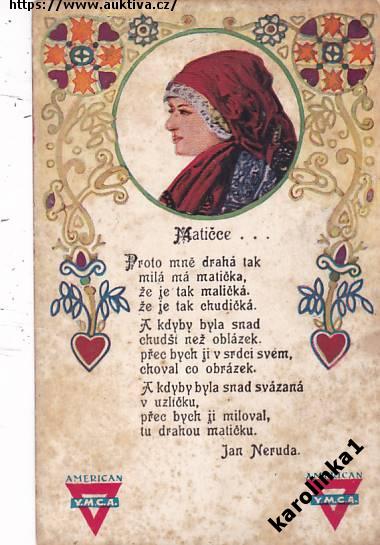 https://www.auktiva.cz/
Matičce . . .
Proto mně drahá tak
milá má matička,
že je tak maličká,
že je tak chudičká.
A kdyby byla snad
chudší než oblázek,
přec bych ji v srdci svém,
choval co obrázek.
A kdyby byla snad svázaná
v uzlíčku,
přec bych ji miloval,
tu drahou matičku.
Jan Neruda.
AMERICAN
Y.M.C.A.
AMERICAN
Y.M.C.A.
karolinka1